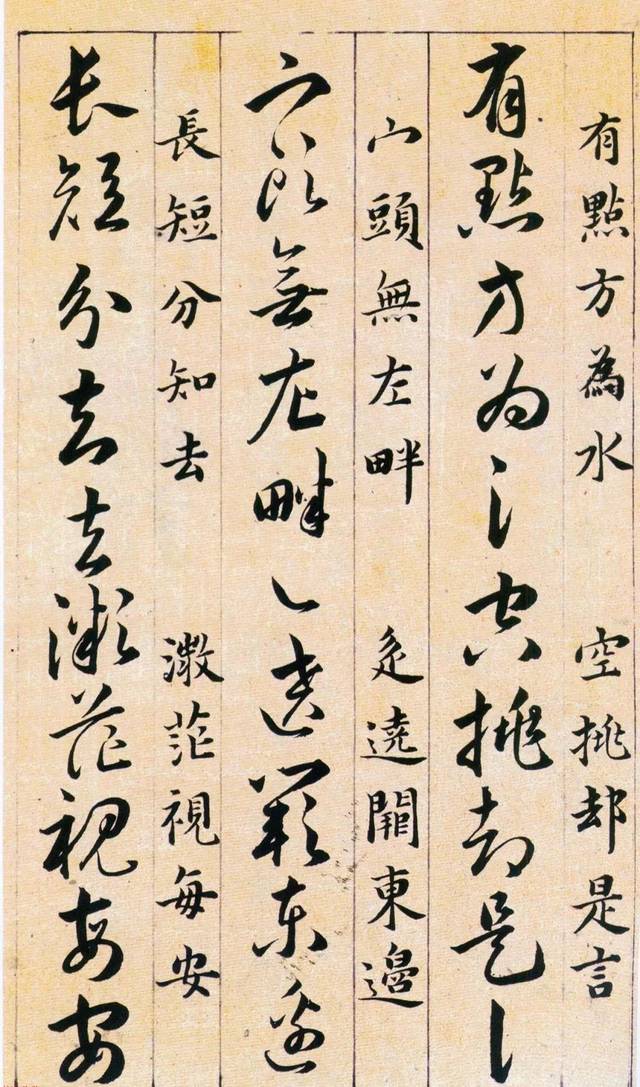 有點方為水 空挑却是言
有點方为氵空挑却是讠
宀頭無左畔 辵遶闕東邊
宀頭無左畔辶遶闕東邊
長短分知去 溦茫視每安
長短分知去溦茫視每安